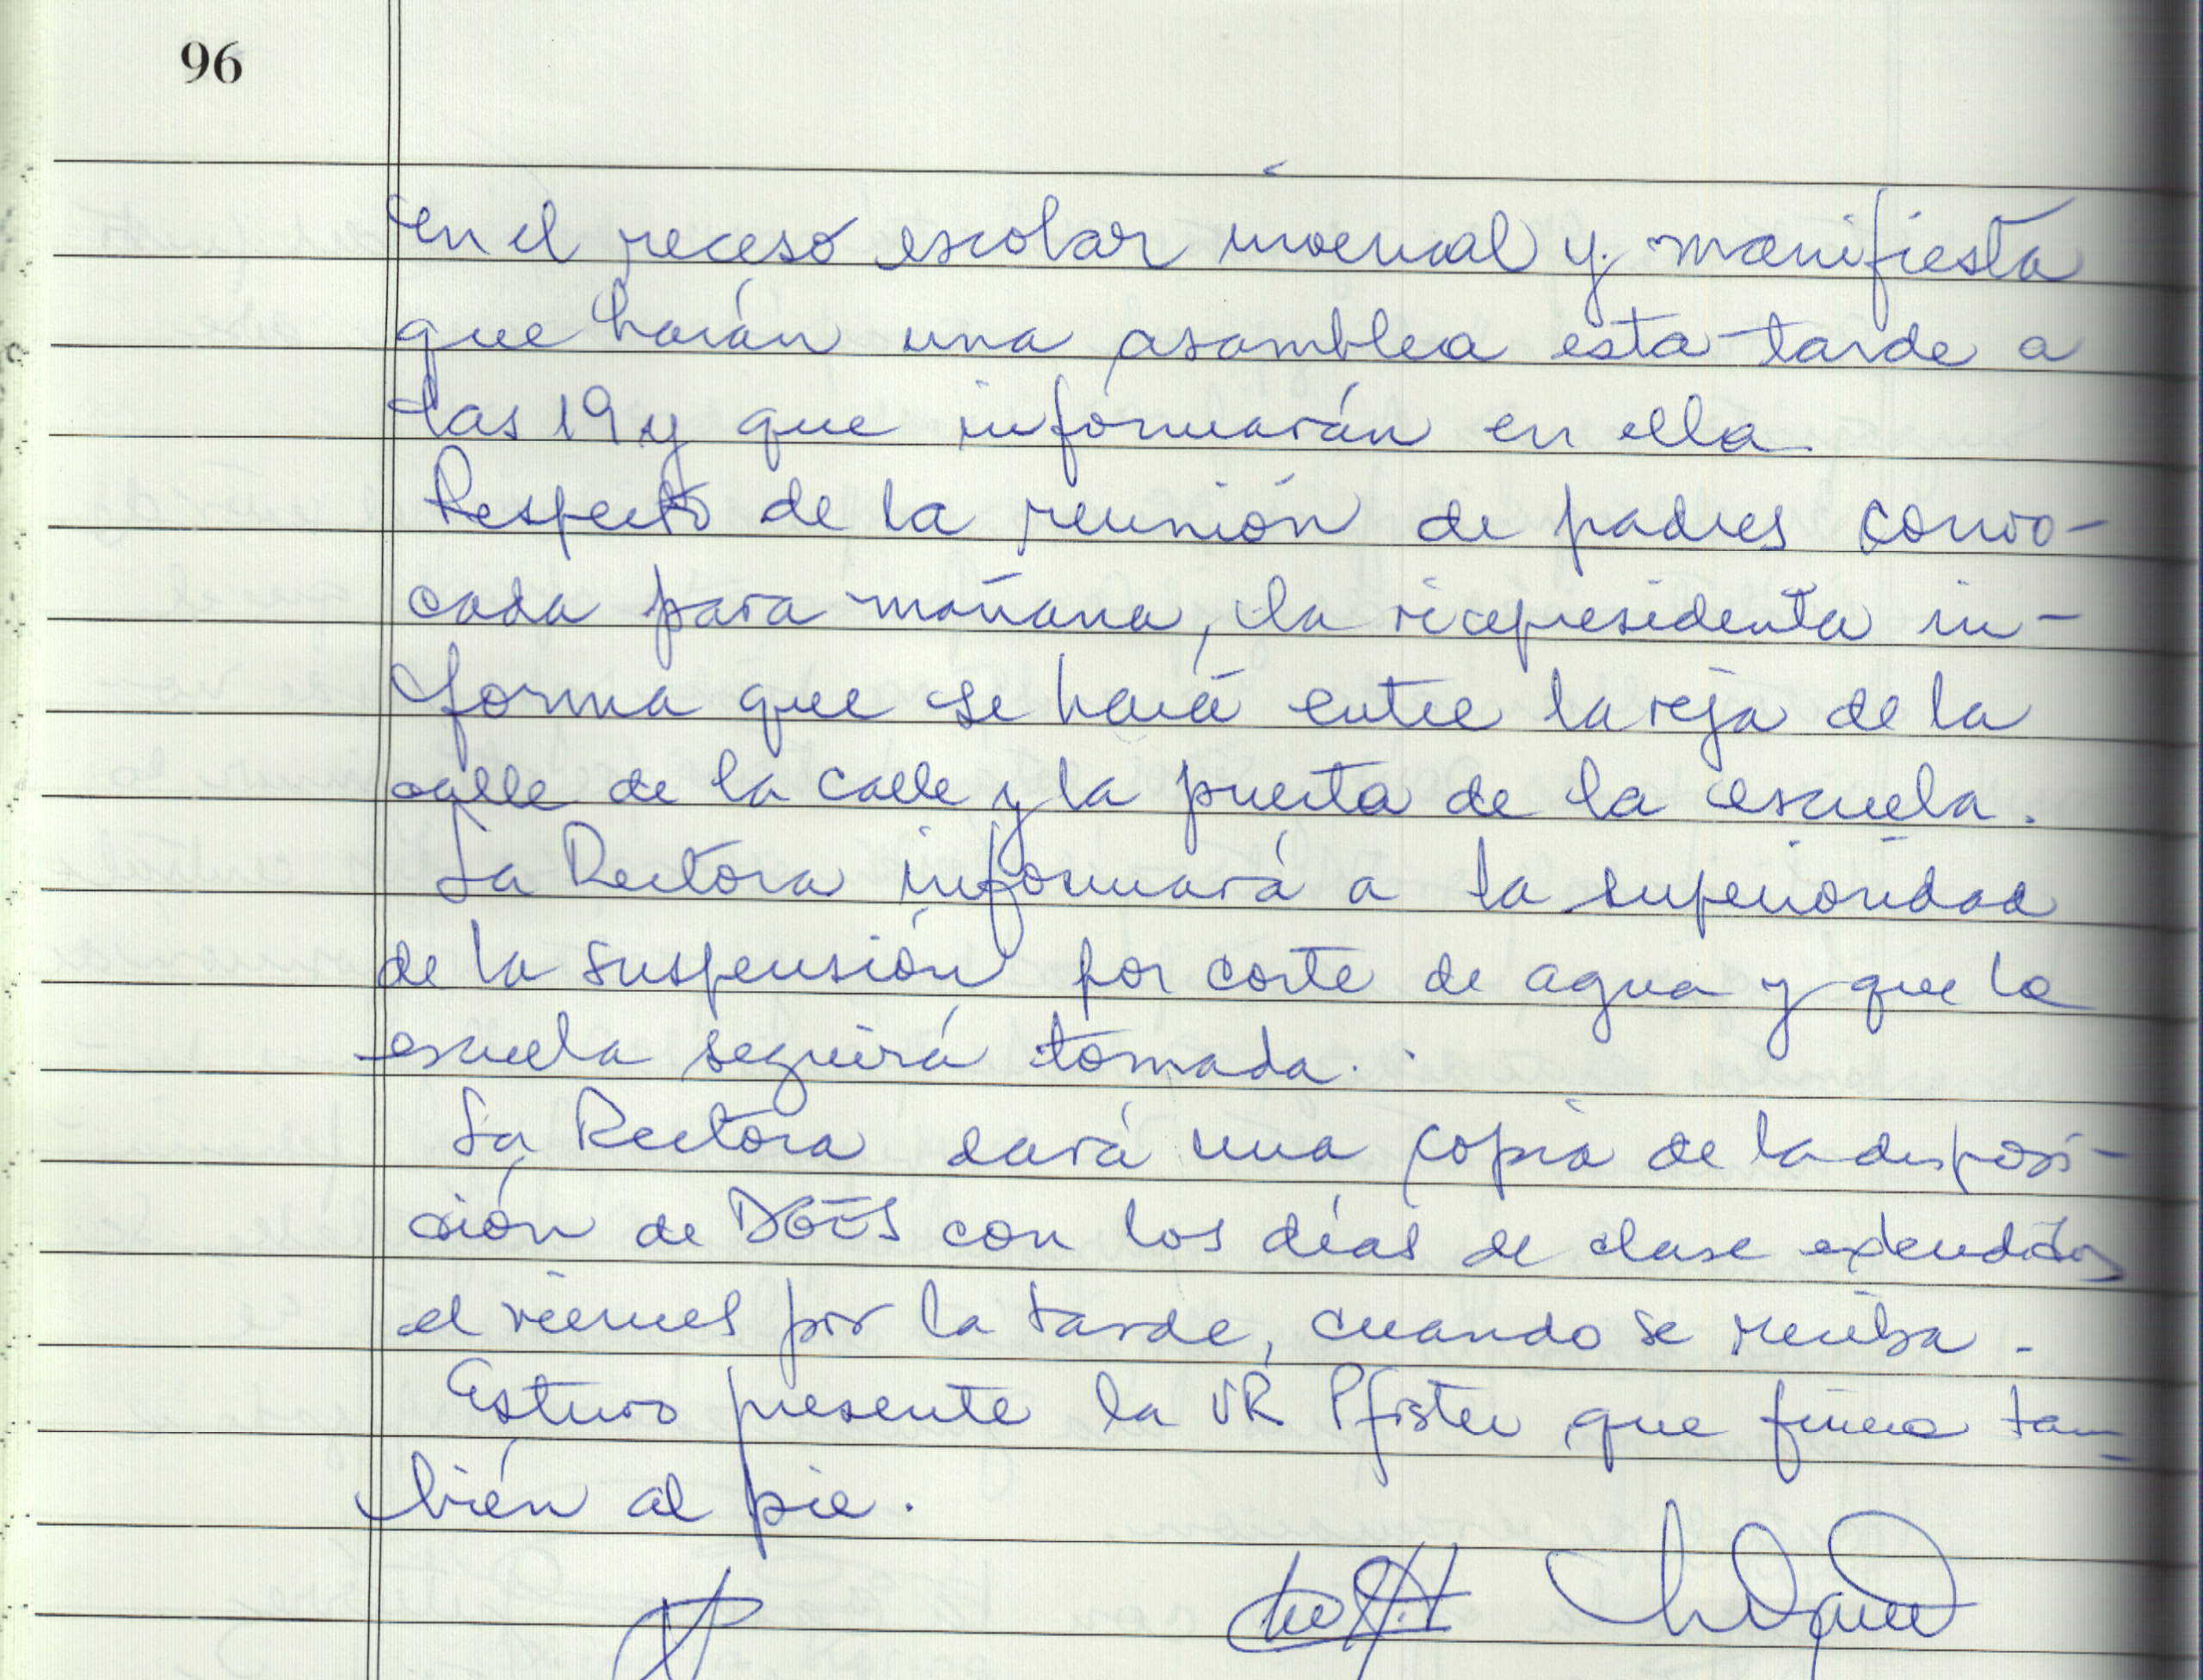 96
en el receso escolar invernal y manifiesta
que harán una asamblea esta tarde a
las 19 y que informarán en ella
Respecto de la reunión de padres convo-
cada para mañana, la vicepresidenta in-
forma que se hará entre la reja de la
calle de la calle y la puerta de la escuela.
La Rectora informará a la superioridad
de la suspensión por corte de agua y que la
escuela seguirá tomada.
La Rectora dará una copia de la disposi-
ción de DGES con los días de clase extendidos
el viernes por la tarde, cuando se reciba.
Estuvo presente la VR Pfister que firma tam-
bién al pie.